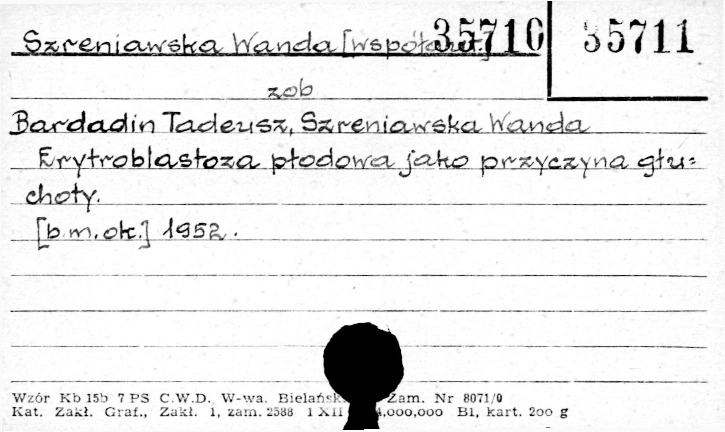 Szreniawska Wanda [współaut.] 35710 35711
zob
Bardadin Tadeusz, Szreniawska Wanda
Erytroblastoza płodowa jako przyczyna głu=
choty.
[b.m.ok.] 1952.
Wzór Kb 15b 7 PS C.W.D. W-wa. Bielańsk. Zam. Nr 8071/0
Kat. Zakł. Graf., Zakł. 1, zam. 2588 1 XII 4,000,000 B1, kart. 200 g